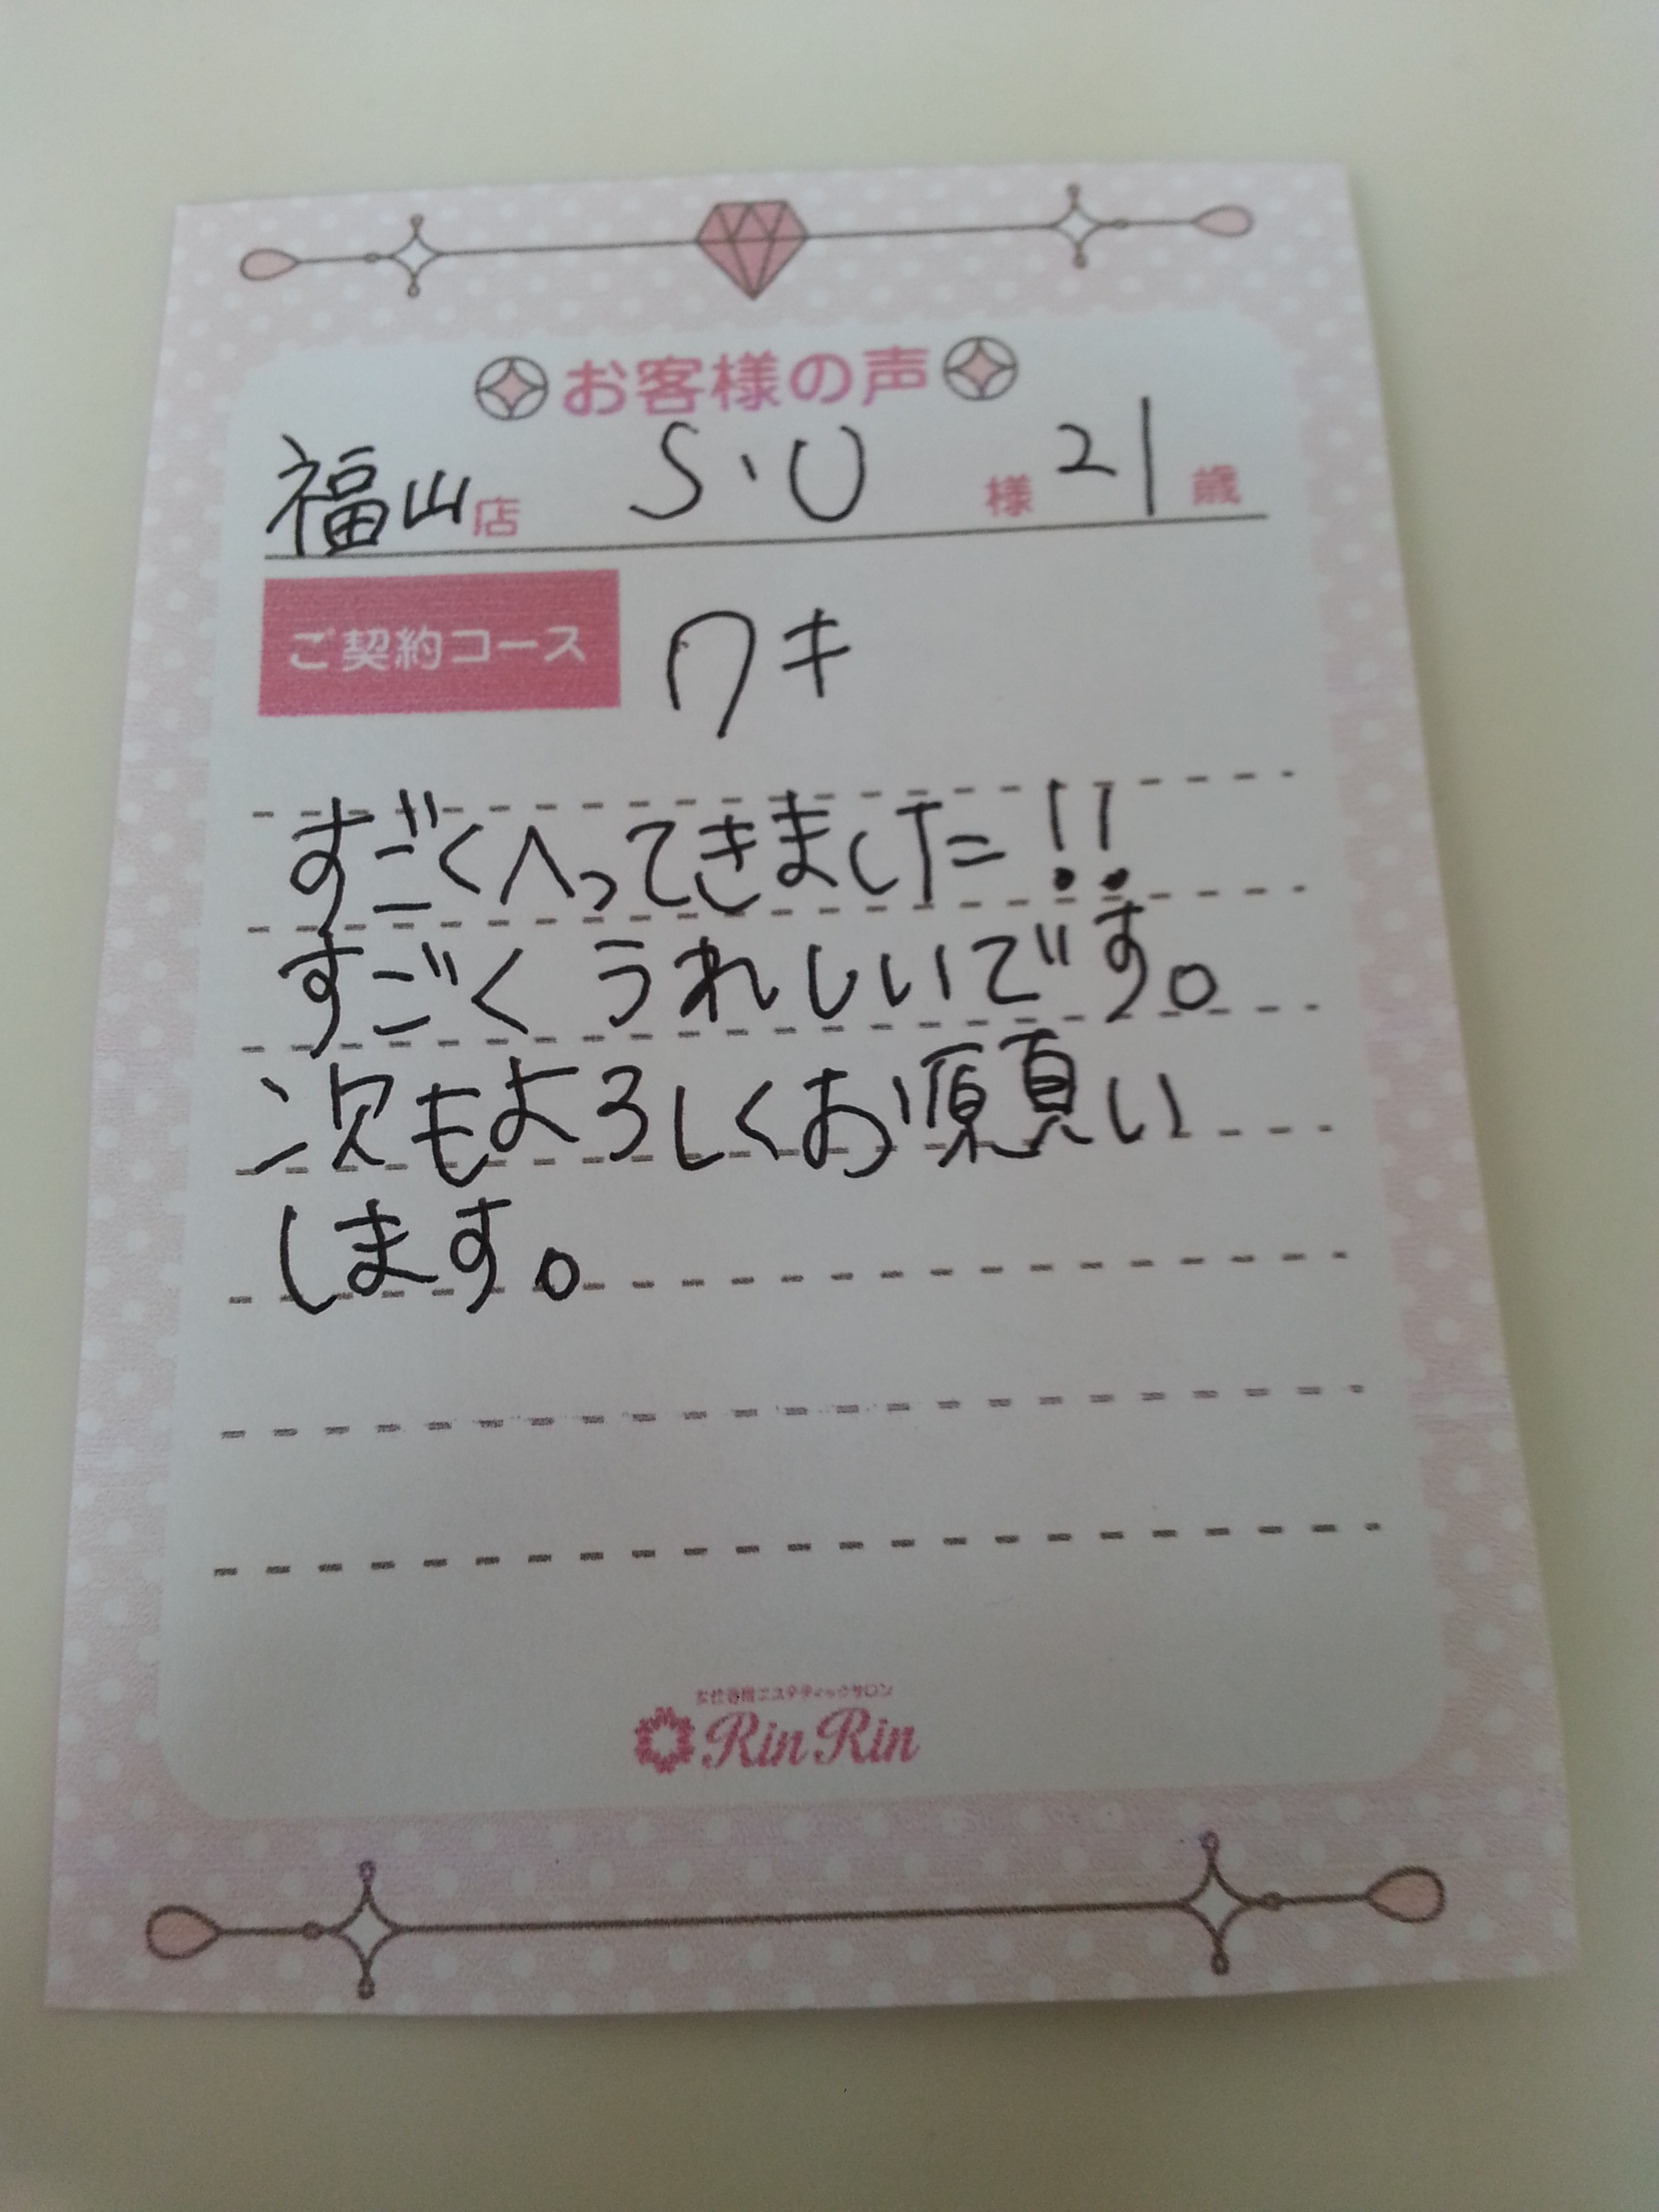 お客様の声
福山店 S・U 様 21歳
ご契約コース ワキ
すごくへってきました!!
すごくうれしいです。
次もよろしくお願い
します。
女性専用エステティックサロン
Rin Rin